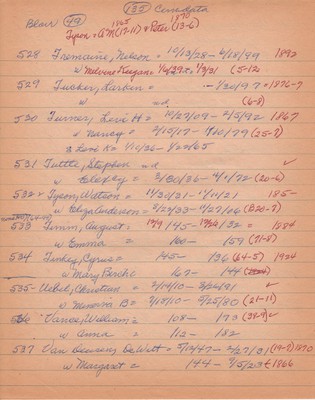 Blair (49) (135) Cenotapha
1865 1870
Tyson = AM (17-11) & Peter (13-6)
528 Tremaine, Nelson = 10/13/28 - 6/18/99 1892
w Melvina Keegan = 1/6/39 1/9/31 (5-12)
529 Tucker, Larkin = - 1/30/97 1876-7
w nd (6-8)
520 Turner, Levi H = 10/27/09 - 2/5/92 1867
w Nancy = 2/15/17 - 7/10/79 (25-7)
S Levi K = 1/10/26 - 1/20/65
531 Tuttle, Stephen nd ✓
w Electy = 3/30/36 - 4/1/72 (20-6)
532 Tyson, Watson = 11/30/31 - 11/11/21 185-
w Eliza Anderson = 2/24/33 - 4/27/06 (B20-7)
533 Timm, August = 145 - 132 = 1884
w Emma = 160 - 159 (71-8)
534 Tinkey, Cyrus = 145 - 136 (64-5) 1924
w Mary = 167 - 144
535 - Uebel, Christian = 2/14/10 - 3/26/81 ✓
w Minerva B = 7/15/10 - 4/25/80 (21-11)
536 Vance, William = 108 - 173 (38-9) ✓
w Anna = 112 - 182
537 Van Deusen, DeWitt = 5/12/47 - 2/27/31 (19-7) 1870
w Margaret = 144 - 9/5/23 ← 1866